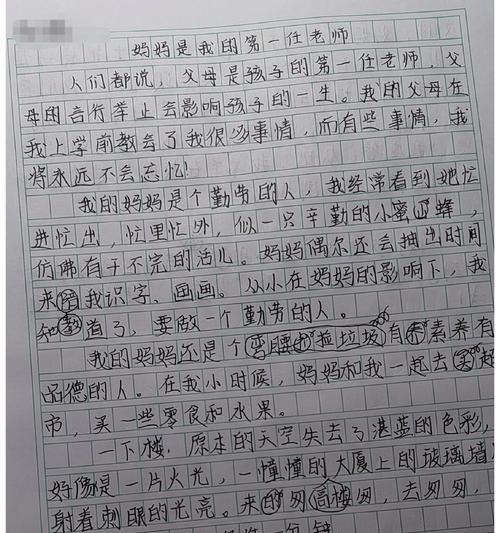 妈妈是我的第一任老师
人们都说，父母是孩子的第一任老师，父
母的言行举止会影响孩子的一生。我的父母在
我上学前教会了我很多事情，而有些事情，我
将永远不会忘忆！
我的妈妈是个勤劳的人，我经常看到她忙
进忙出，忙里忙外，似一只辛勤的小蜜蜂，
仿佛有干不完的活儿。妈妈偶尔还会抽出时间
来陪我识字、画画。从小在妈妈的影响下，我
知教道了，要做一个勤劳的人。
我的妈妈还是个弯腰捡垃圾有素养有
品德的人。在我小时候，妈妈和我一起去超
市，买一些零食和水果。
一下楼，原本的天空失去了湛蓝的色彩，
好像是一片火光，一幢幢的大厦上的玻璃墙
射着刺眼的光亮。来的匆高楼匆，去匆匆，